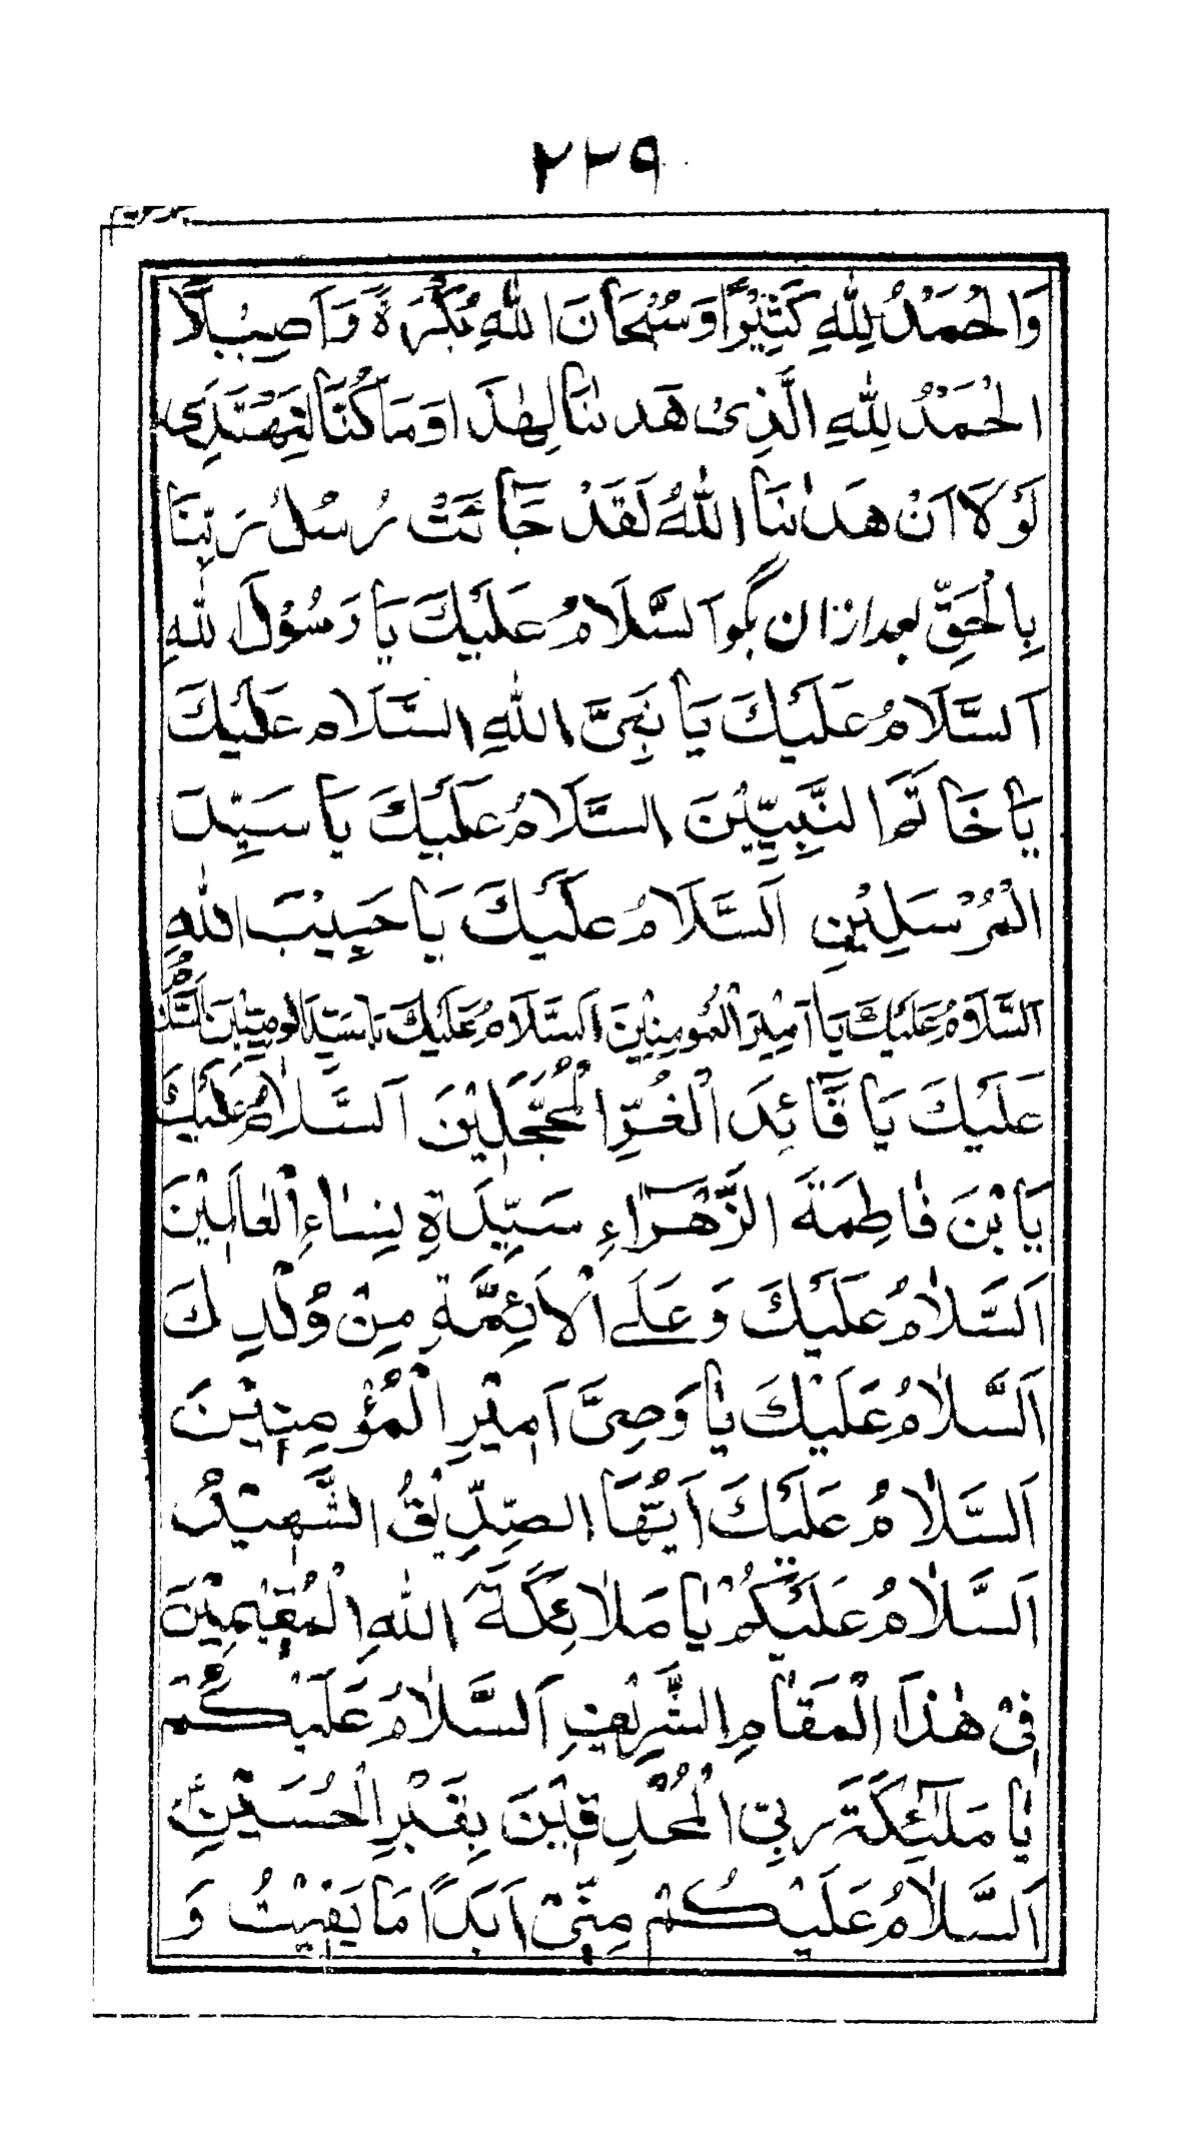 ٢٢٩
وَالْحَمْدُ لِلّٰهِ كَثِيْرًا وَسُبْحَانَ اللّٰهِ بُكْرَةً وَاَصِيْلًا
الْحَمْدُ لِلّٰهِ الَّذِىْ هَدٰىنَا لِهٰذَا وَمَا كُنَّا لِنَهْتَدِىَ
لَوْلَا اَنْ هَدٰىنَا اللّٰهُ لَقَدْ جَائَتْ رُسُلُ رَبِّنَا
بِالْحَقِّ بعد ازان بگو اَلسَّلَامُ عَلَيْكَ يَا رَسُوْلَ اللّٰهِ
اَلسَّلَامُ عَلَيْكَ يَا نَبِىَّ اللّٰهِ السَّلَام عَلَيْكَ
يَا خَاتَمَ النَّبِيِّيْنَ السَّلَامُ عَلَيْكَ يَا سَيِّدَ
الْمُرْسَلِيْنِ اَلسَّلَامُ عَلَيْكَ يَا حَبِيْبَ اللّٰهِ
اَلسَّلَامُ عَلَيْكَ يَا اَمِيْرَ الْمُومِنِيْنَ اَلسَّلَامُ عَلَيْكَ يَا سَيِّدَ الْوَصِيِّيْنَ اَلسَّلَامُ
عَلَيْكَ يَا قَائِدَ الْغُرِّ الْمُحَجَّلِيْنَ اَلسَّلَامُ عَلَيْكَ
يَا بْنَ فَاطِمَةَ الزَّهْرَاءِ سَيِّدَةِ نِسٰاءِ الْعٰالَمِيْنَ
اَلسَّلٰامُ عَلَيْكَ وَعَلَى الْاَئِمَّةِ مِنْ وُلْدِكَ
اَلسَّلٰامُ عَلَيْكَ يٰا وَصِىَّ اَمِيْرِ الْمُؤْمِنِيْنَ
اَلسَّلٰامُ عَلَيْكَ اَيُّهَا الصِّدِّيْقُ الشَّهِيْدُ
اَلسَّلٰامُ عَلَيْكُمْ يٰا مَلٰائِكَةَ اللّٰهِ الْمُقِيْمِيْنَ
فِىْ هٰذَا الْمَقٰامِ الشَّرِيْفِ اَلسَّلٰامُ عَلَيْكُمْ
يٰا مَلٰٓئِكَةَ رَبِّى الْمُحْدِقِيْنَ بِقَبْرِ الْحُسَيْنِ
اَلسَّلٰامُ عَلَيْكُمْ مِنِّىْ اَبَدًا مَا بَقِيْتُ وَ